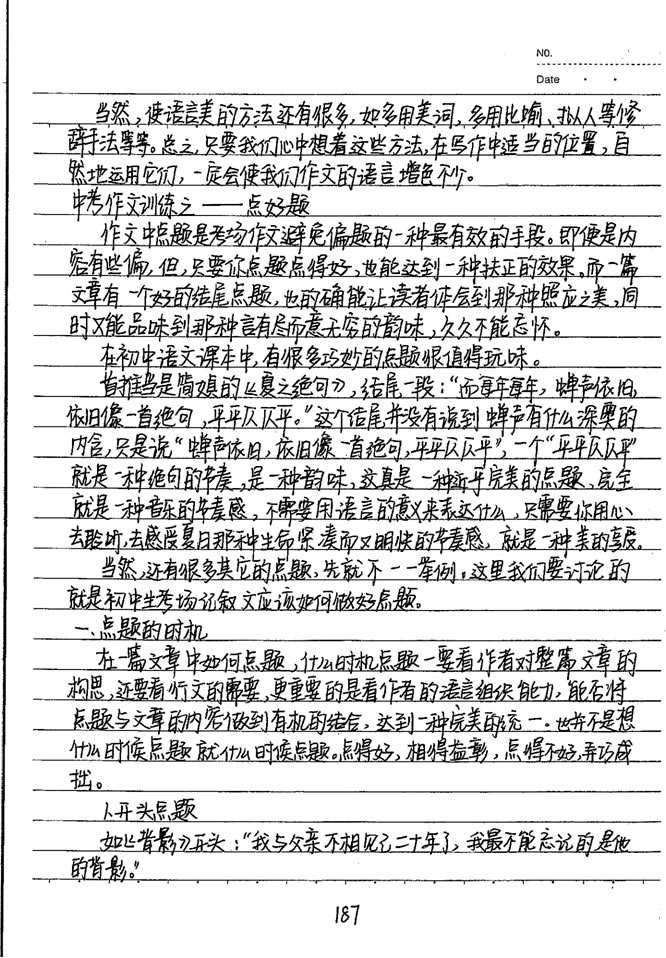 NO.
Date · ·
当然，使语言美的方法还有很多，如多用美词，多用比喻、拟人等修
辞手法等等。总之，只要我们心中想着这些方法，在写作中适当的位置，自
然地运用它们，一定会使我们作文的语言增色不少。
中考作文训练之——点好题
作文中点题是考场作文避免偏题的一种最有效的手段。即便是内
容有些偏，但，只要你点题点得好，也能达到一种扶正的效果。而一篇
文章有一个好的结尾点题，也的确能让读者体会到那种照应之美，同
时又能品味到那种言有尽而意无穷的韵味，久久不能忘怀。
在初中语文课本中，有很多巧妙的点题很值得玩味。
首推当是简媜的《夏之绝句》，结尾一段：“而每年每年，蝉声依旧，
依旧像一首绝句，平平仄仄平。”这个结尾并没有说到蝉声有什么深奥的
内含，只是说“蝉声依旧，依旧像一首绝句，平平仄仄平”，一个“平平仄仄平”
就是一种绝句的节奏，是一种韵味，这真是一种近乎完美的点题、完全
就是一种音乐的节奏感，不需要用语言的意义来表达什么，只需要你用心
去聆听，去感受夏日那种生命紧凑而又明快的节奏感，就是一种美的享受。
当然，还有很多其它的点题，先就不一一举例。这里我们要讨论的
就是初中生考场记叙文应该如何做好点题。
一、点题的时机
在一篇文章中如何点题，什么时机点题一要看作者对整篇文章的
构思，还要看行文的需要，更重要的是看作者的语言组织能力，能否将
点题与文章的内容做到有机的结合，达到一种完美的统一。也并不是想
什么时候点题就什么时候点题。点得好，相得益彰，点得不好，弄巧成
拙。
1.开头点题
如《背影》开头：“我与父亲不相见已二十年了，我最不能忘记的是他
的背影。”
187